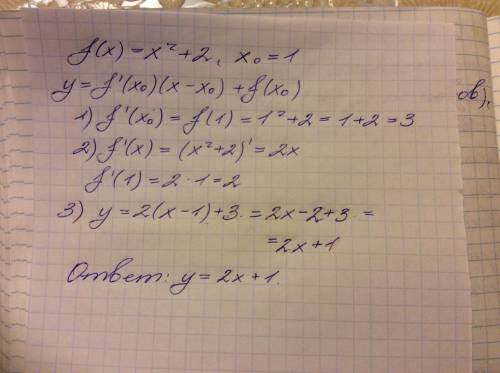 f(x) = x² + 2, x₀ = 1
y = f'(x₀)(x - x₀) + f(x₀)
ов),
1) f'(x₀) = f(1) = 1² + 2 = 1 + 2 = 3
2) f'(x) = (x² + 2)' = 2x
f'(1) = 2 · 1 = 2
3) y = 2(x - 1) + 3 = 2x - 2 + 3 =
= 2x + 1
Ответ: y = 2x + 1.